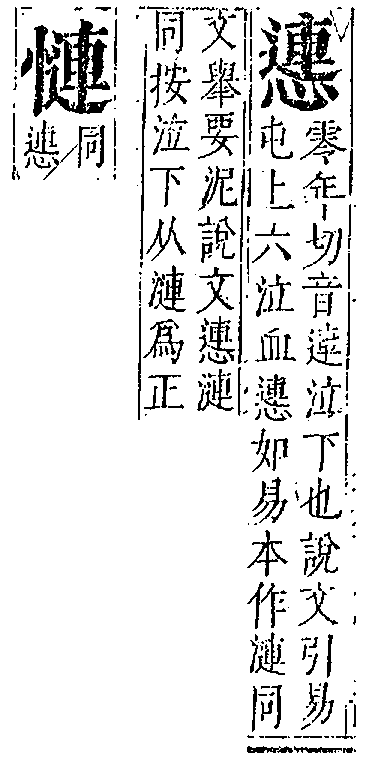 㦁
零年切音連泣下也說文引易
屯上六泣血㦁如易本作漣同
文舉要泥說文㦁漣
同按泣下从漣爲正
慩
同
㦁